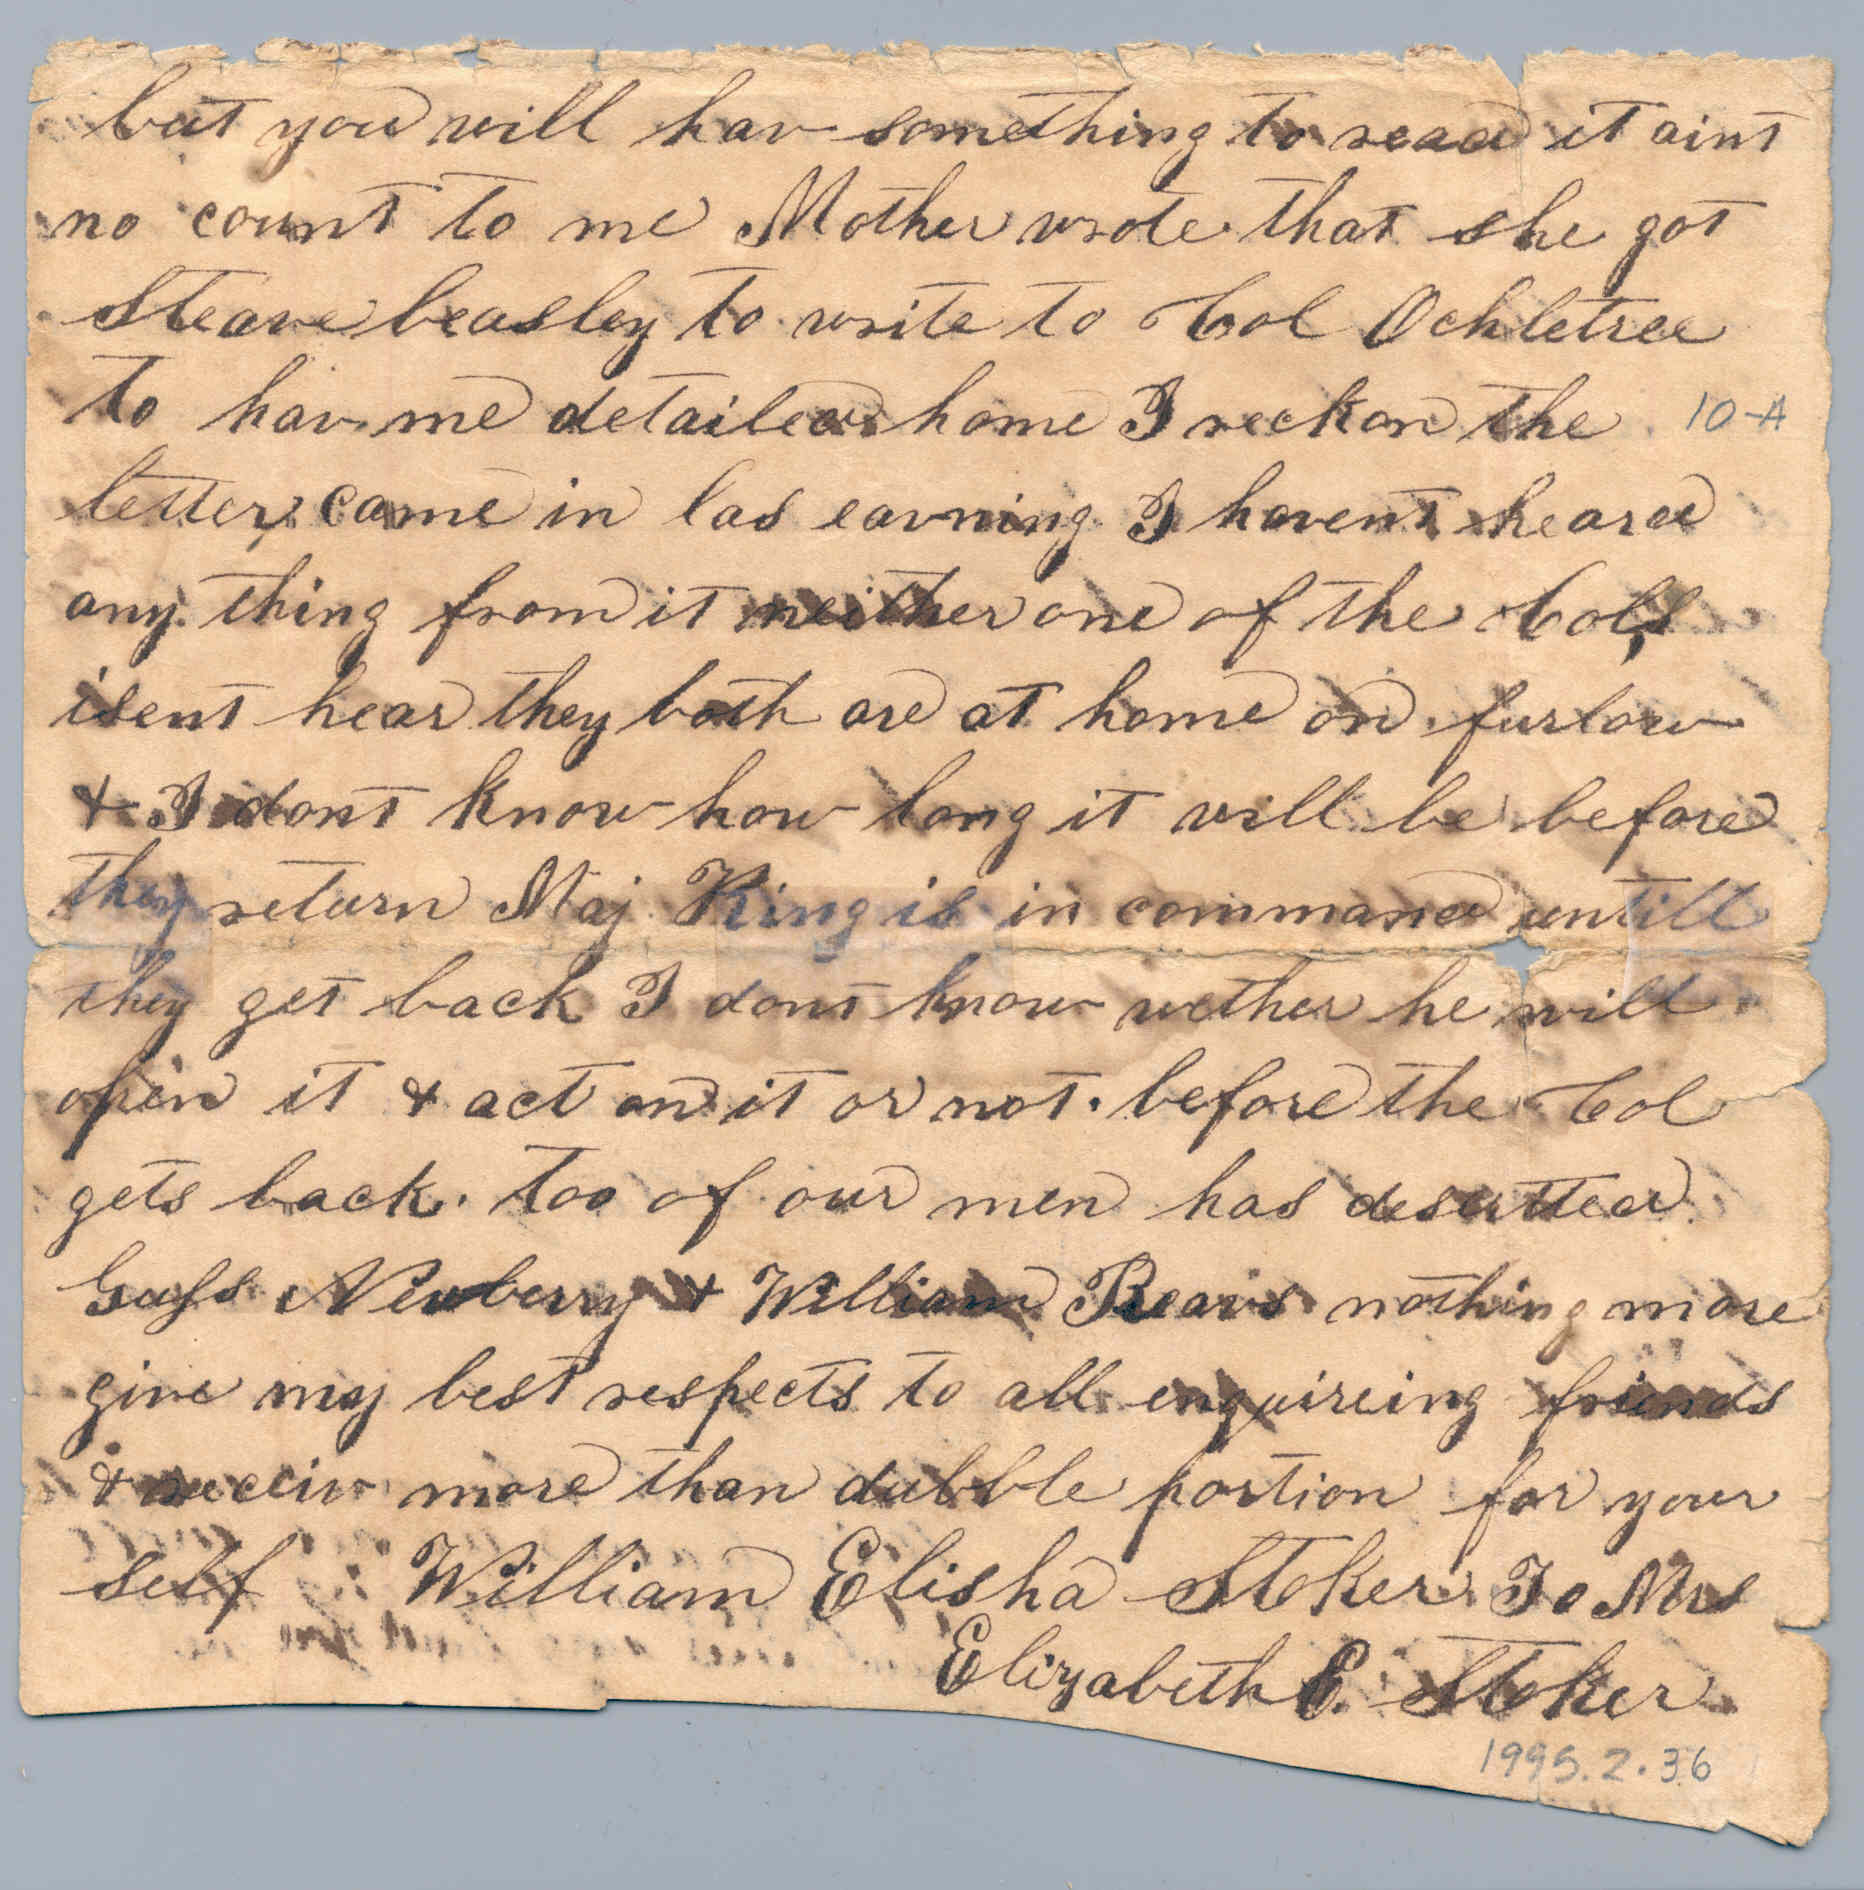 but you will hav something to read it aint
no count to me Mother wrote that she got
Steave beasley to write to Col Ochletree
to hav me detailed home I reckon the
10-A
letter came in las eavning I havent heard
any thing from it neither one of the Col,s
isent hear they both are at home on furlow
& I dont know how long it will be before
they return Maj King is in command untill
they get back I dont know wether he will
open it & act on it or not. before the Col
gets back. too of our men has desertted
Guss Newberry & William Reavis nothing more
give my best respects to all enquireing friends
& receiv more than dubble portion for your
self William Elisha Stoker To Mrs
Elizabeth E. Stoker
1995.2.36